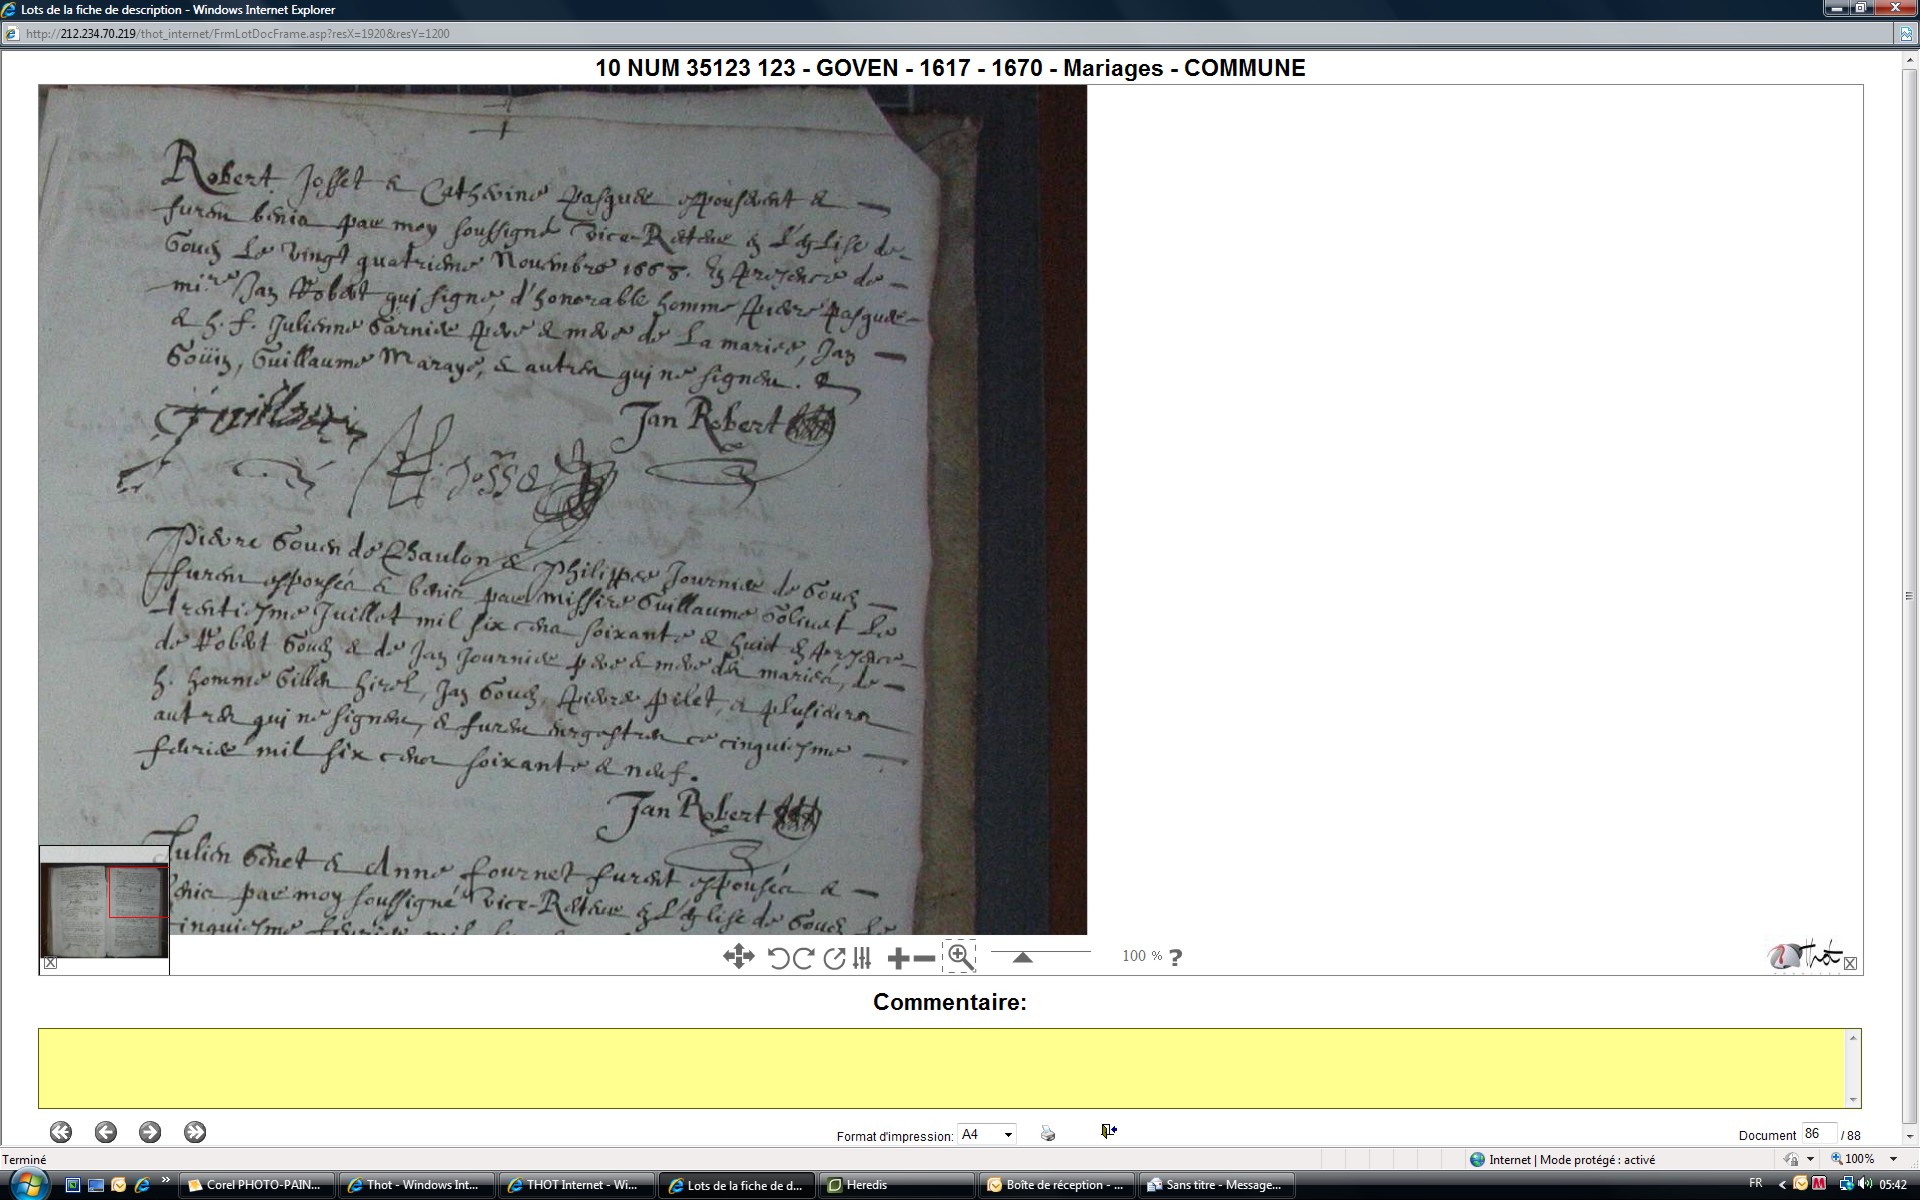 Lots de la fiche de description - Windows Internet Explorer
http://212.234.70.219/thot_internet/FrmLotDocFrame.asp?resX=1920&resY=1200
10 NUM 35123 123 - GOVEN - 1617 - 1670 - Mariages - COMMUNE
Robert Josset & Catherine Pasquer espousent &
furen benis par moy soussigné Vice-Recteur en L'eglise de
Goven Le vingt quatrieme Novembre 1668. En presence de
mi.re Jan Robert qui signe, d'honorable homme Pierre Pasquer
& h. f. Julienne Garnier pere & mere de La mariee, Jan
Goüin, Guillaume Maraye, & autres qui ne signen. &
Jan Robert
Josset
Pierre Goven de Chaulon & Philippe Journier de Goven
furen espousés & benis par missire Guillaume Solivet Le
trentiesme Juillet mil six cens soixante & huict en presence
de Robert Goven & de Jan Journier pere & mere des mariés, de
h. homme Gilles hirel, Jan Goven, Pierre pilet, & plusieurs
autres qui ne signen, & furen enregestres ce cinquiesme
febvrier mil six cens soixante & neuf.
Jan Robert
Julien Genet & Anne fournet furent espousés &
benis par moy soussigné Vice-Recteur en L'eglise de Goven Le
cinquiesme febvrier mil
100 % ?
Thot
Commentaire:
Format d'impression: A4
Document 86 / 88
Terminé
Internet | Mode protégé : activé
100%
Corel PHOTO-PAIN...
Thot - Windows Int...
THOT Internet - Wi...
Lots de la fiche de d...
Heredis
Boîte de réception - ...
Sans titre - Message...
FR
05:42